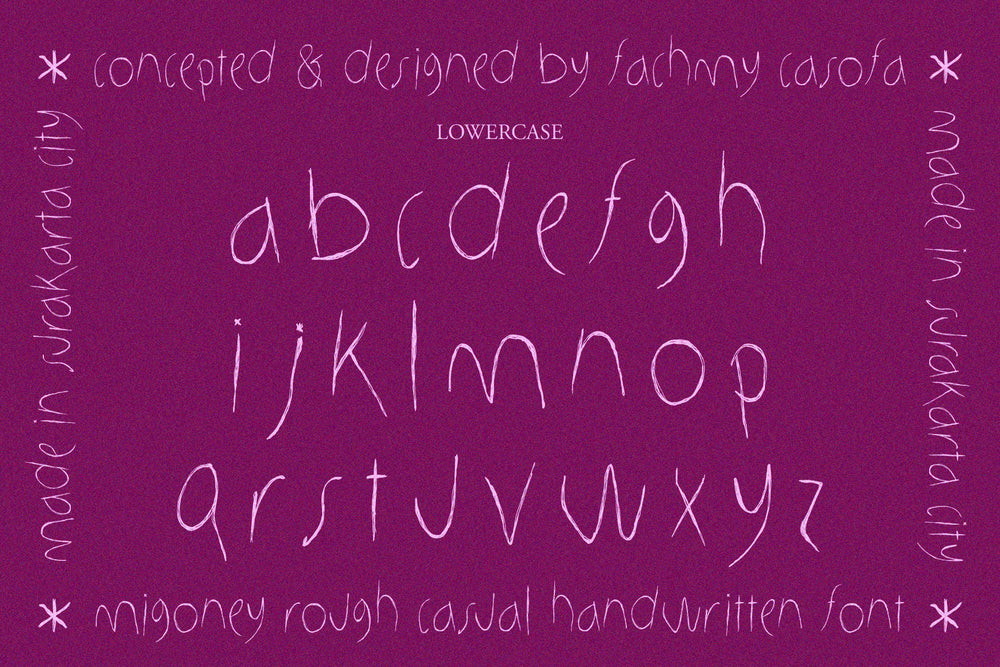 * concepted & designed by fachmy casofa *
made in surakarta city
LOWERCASE
abcdefgh
ijklmnop
qrstuvwxyz
made in surakarta city
* migoney rough casual handwritten font *